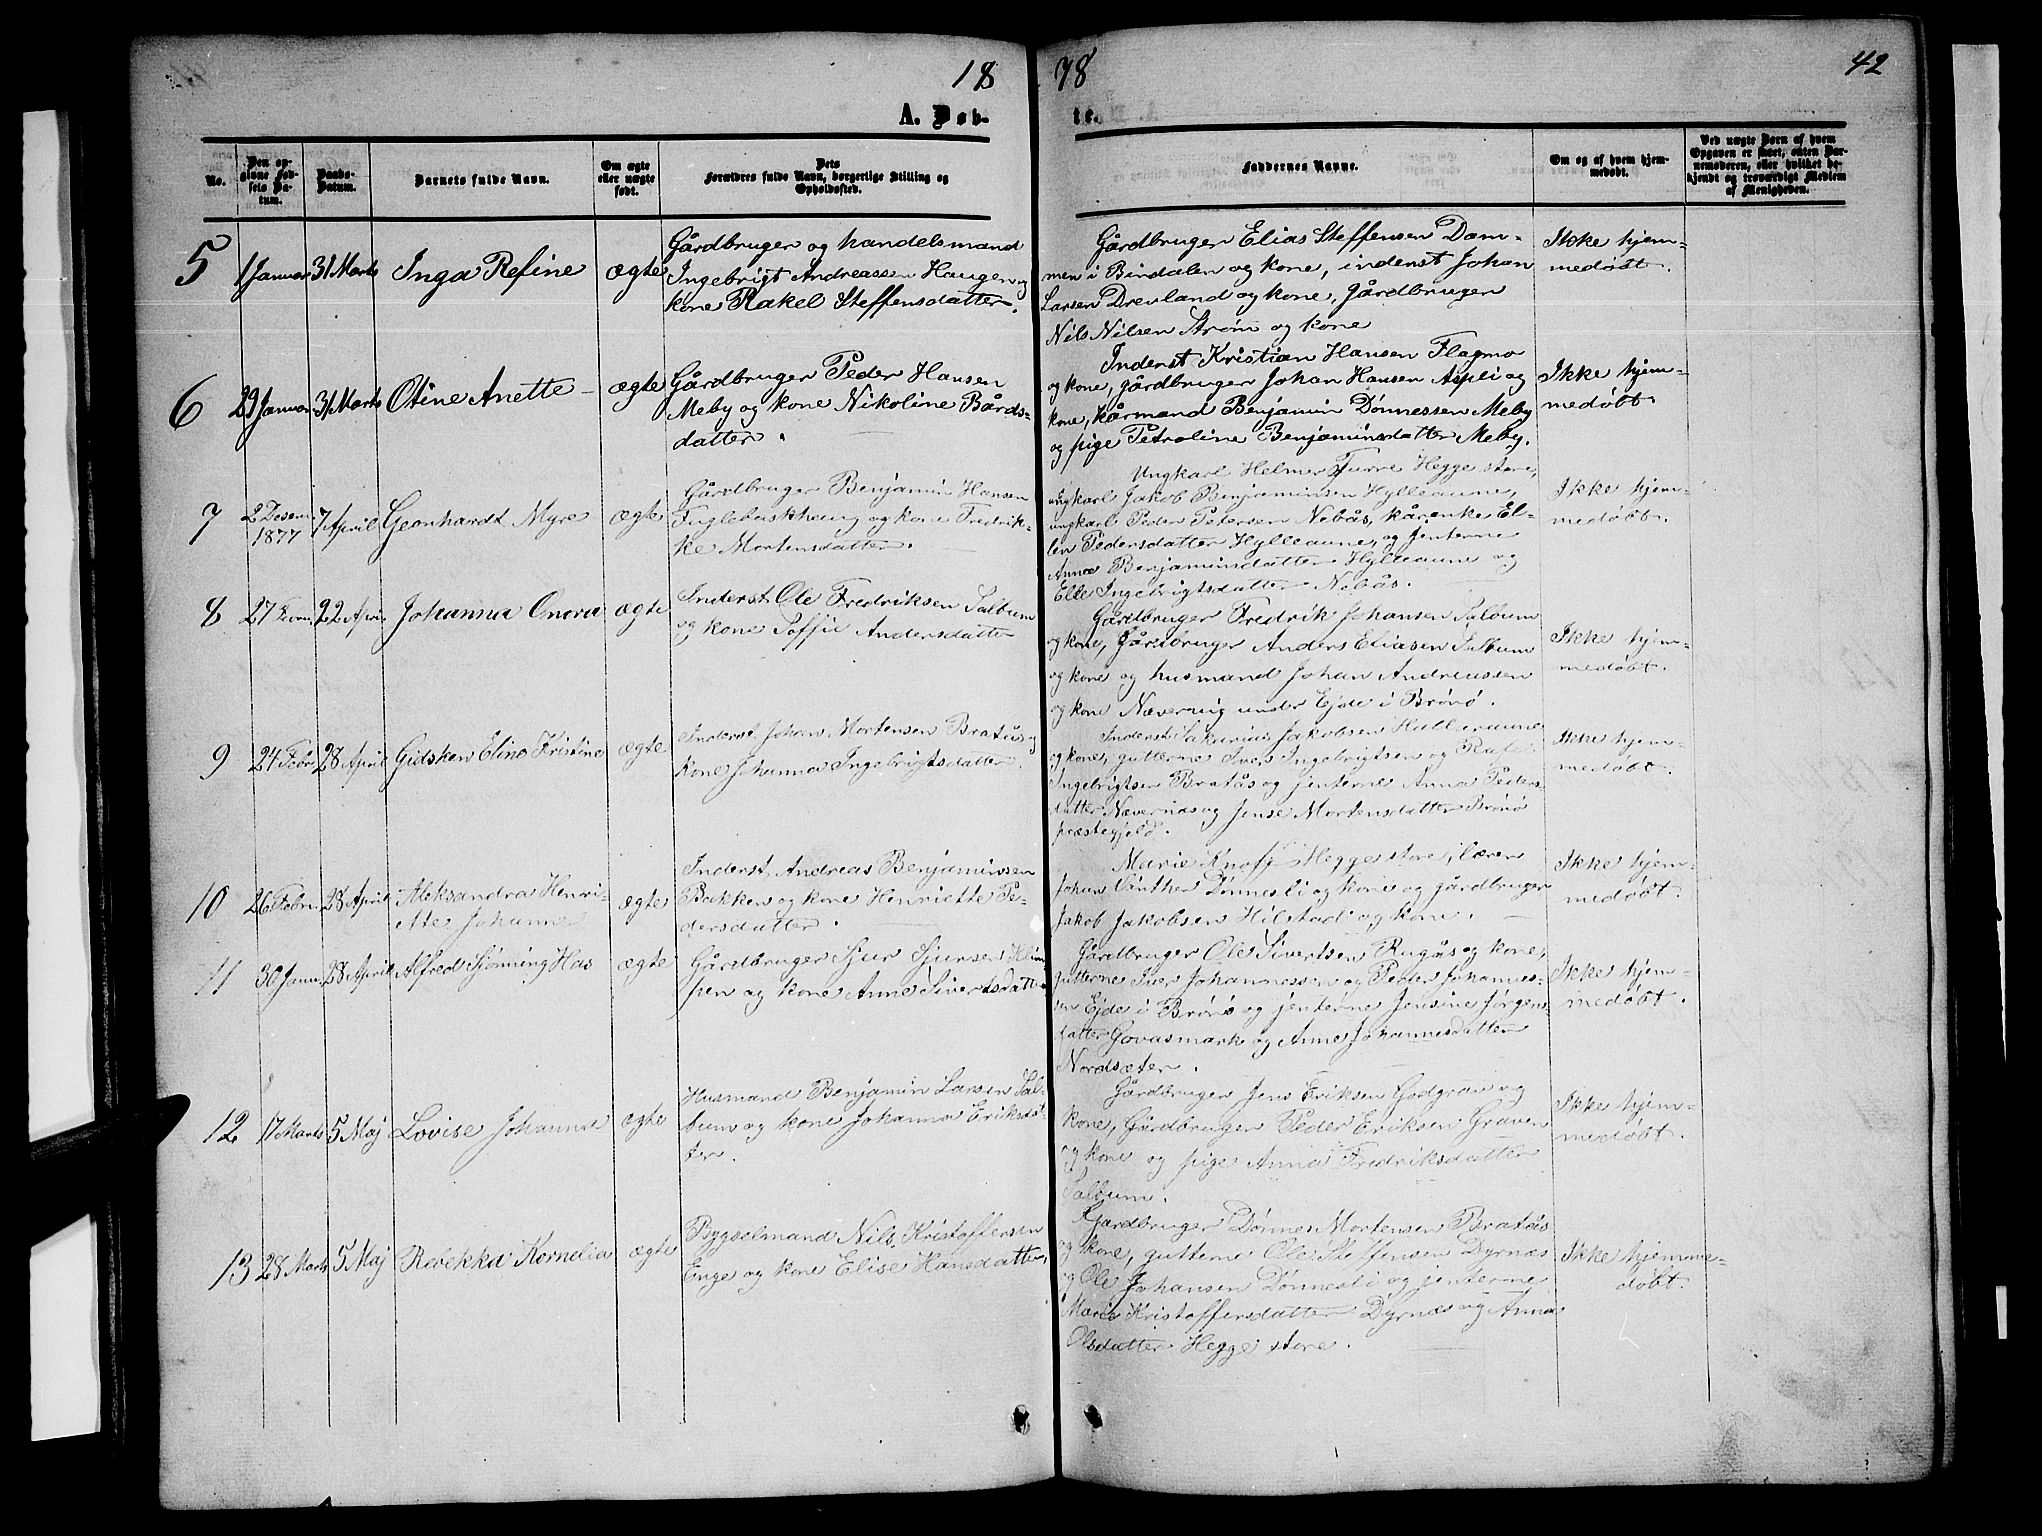 18 78
42
A. Døb- te.
No.
Den op-
givne Fød-
sels Da-
tum.
Daabs-
Datum.
Barnets fulde Navn.
Om ægte
eller uægte
født.
Dets
Forældres fulde Navn, borgerlige Stilling og
Opholdssted.
Faddernes Navne.
Om og af hvem hjem-
medøbt.
Ved uægte Børn af hvem
Opgaven er skeet, enten Bar-
nemoderen, eller hvilket be-
kjendt og troværdigt Medlem
af Menigheden.
5 1 Januar 31 Marts Inga Refine ægte
Gårdbruger og handelsmand
Ingebrigt Andreassen Haugen og
kone Rakel Steffensdatter.
Gårdbruger Elias Steffensen Dam-
men i Bindalen og kone, inderst Johan
Larsen Drevland og kone, Gårdbruger
Nils Nilsen Strøm og kone
Ikke hjem-
medøbt.
6 29 Januar 31 Marts Otine Anette ægte
Gårdbruger Peder Hansen
Meby og kone Nikoline Bårds-
datter.
Inderst Kristian Hansen Flagmo
og kone, gårdbruger Johan Hansen Aspli og
kone, kårmand Benjamin Dønnessen Meby
og pige Petroline Benjaminsdatter Meby.
Ikke hjem-
medøbt.
7 2 Desem 1877 7 April Geonhardt Myre ægte
Gårdbruger Benjamin Hansen
Fuglebaskhaug og kone Fredrik-
ke Mortensdatter.
Ungkarl Helmer Furre Hegge store,
ungkarl Jakob Benjaminsen Hylleaune,
ungkarl Peder Petersen Nebås, kårenke El-
len Pedersdatter Hylleaune, og jenterne
Anna Benjaminsdatter Hylleaune og
Elle Ingebrigtsdatter Nebås.
Ikke hjem-
medøbt.
8 27 22 April Johanna Onora ægte
Inderst Ole Fredriksen Salbum
og kone Soffie Andersdatter
Gårdbruger Fredrik Johansen Salbum
og kone, Gårdbruger Anders Eliasen Salbum
og kone og husmand Johan Andreassen
og kone Nævernes under Ejde i Brønø.
Ikke hjem-
medøbt.
9 24 Febr 28 April Gidsken Elina Kristine ægte
Inderst Johan Mortensen Bratås og
kone Johanna Ingebrigtsdatter
Inderst Sakarias Jakobsen Hulleraune
og kone, gutterne Iver Ingebrigtsen og
Ingebrigtsen Bratås og jenterne Anna Peders-
datter Nævernæs og Jense Mortensdatter Brønø
præstegjeld.
Ikke hjem-
medøbt.
10 26 Febru 28 April Aleksandra Henri-
ette Johanne ægte
Inderst Andreas Benjaminsen
Bakken og kone Henriette Pe-
dersdatter.
Marie Knoff Hegge store, lærer
Johan Vinther Dønnesli og kone og gårdbruger
Jakob Jakobsen Hilstad og kone.
Ikke hjem-
medøbt.
11 30 Janu. 28 April Alfred Sjønning Has ægte
Gårdbruger Sjur Sjursen Klim-
pen og kone Anne Sivertsdatter
Gårdbruger Ole Sivertsen Rugås og kone,
gutterne Iver Johannessen og Peter Johannes-
sen Ejde i Brønø og jenterne Jensine Jørgens-
datter Govasmark og Anne Johannesdatter
Nordsæter.
Ikke hjem-
medøbt.
12 17 Marts 5 Maj Lovise Johanna ægte
Husmand Benjamin Larsen Sal-
bum og kone Johanna Eriksdat-
ter.
Gårdbruger Jens Eriksen Godgrav og
kone, Gårdbruger Peder Eriksen Graven
og kone og pige Anna Fredriksdatter
Salbum.
Ikke hjem-
medøbt.
13 28 Marts 5 Maj Rebekka Kornelia ægte
Bygselmand Nils Kristoffersen
Enge og kone Elise Hansdatter,
Gårdbruger Dønnes Mortensen Bratås
og kone, gutterne Ole Steffensen Dyrnæs
og Ole Johansen Dønnesli og jenterne
Maria Kristoffersdatter Dyrnæs og Anna
Olsdatter Hegge store.
Ikke hjemme-
døbt.